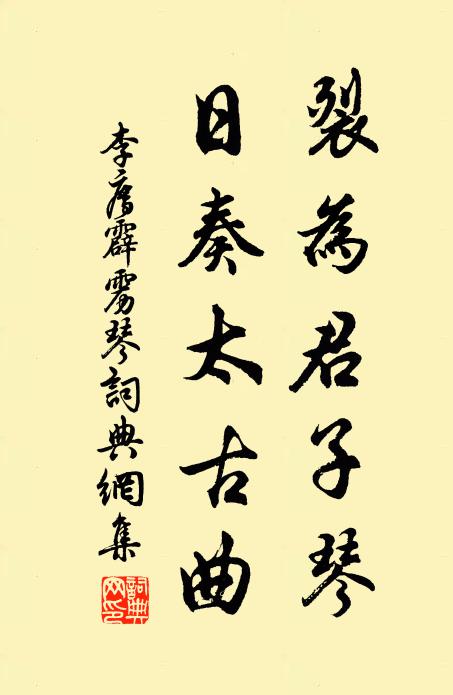 裂為君子琴
日奏太古曲
李廌霹雳琴詞典網集
詞典网印